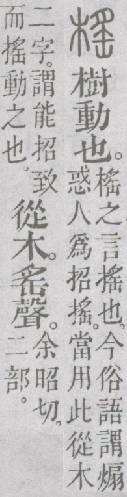 榣
樹動也。
榣之言搖也。今俗語謂煽
惑人爲招搖。當用此從木
二字。謂能招致
而搖動之也。
從木。䍃聲。
余昭切。
二部。